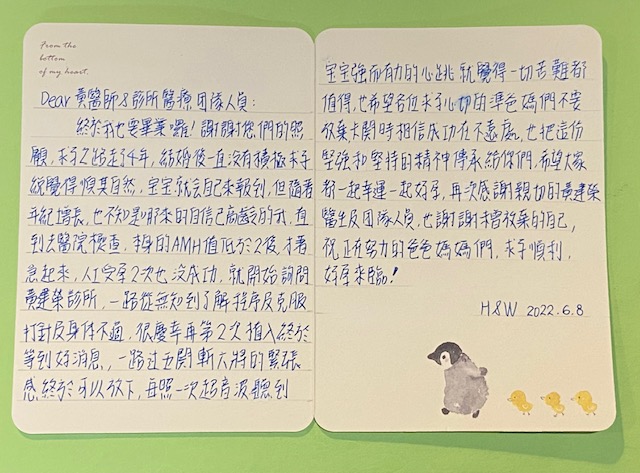 From the
bottom
of my heart.
Dear 黃醫師&診所醫療團隊人員:
終於我也要畢業囉!謝謝您們的照
顧,求子之路走了4年,結婚後一直沒有積極求子
總覺得順其自然,寶宝就会自己來報到,但隨著
年紀增長,也不知是哪來的自信已高齡的我,直
到去醫院檢查,本身的AMH值低於2後,才着
急起來,人工受孕2次也沒成功,就開始詢問
黃建榮診所,一路從無知到了解程序及克服
打針及身体不適,很慶幸再第2次植入終於
等到好消息,一路过五関斬六將的緊張
感終於可以放下,每照一次超音波聽到
宝宝強而有力的心跳就覺得一切苦難都
值得,也希望各位求子心切的準爸媽們不要
放棄卡関時相信成功在不遠處,也把這份
堅強和堅持的精神傳承給你們,希望大家
都一起幸運一起好孕,再次感謝親切的黃建榮
醫生及團隊人員,也謝謝不曾放棄的自己,
祝正在努力的爸爸媽媽們,求子順利,
好孕來臨!
H&W 2022.6.8